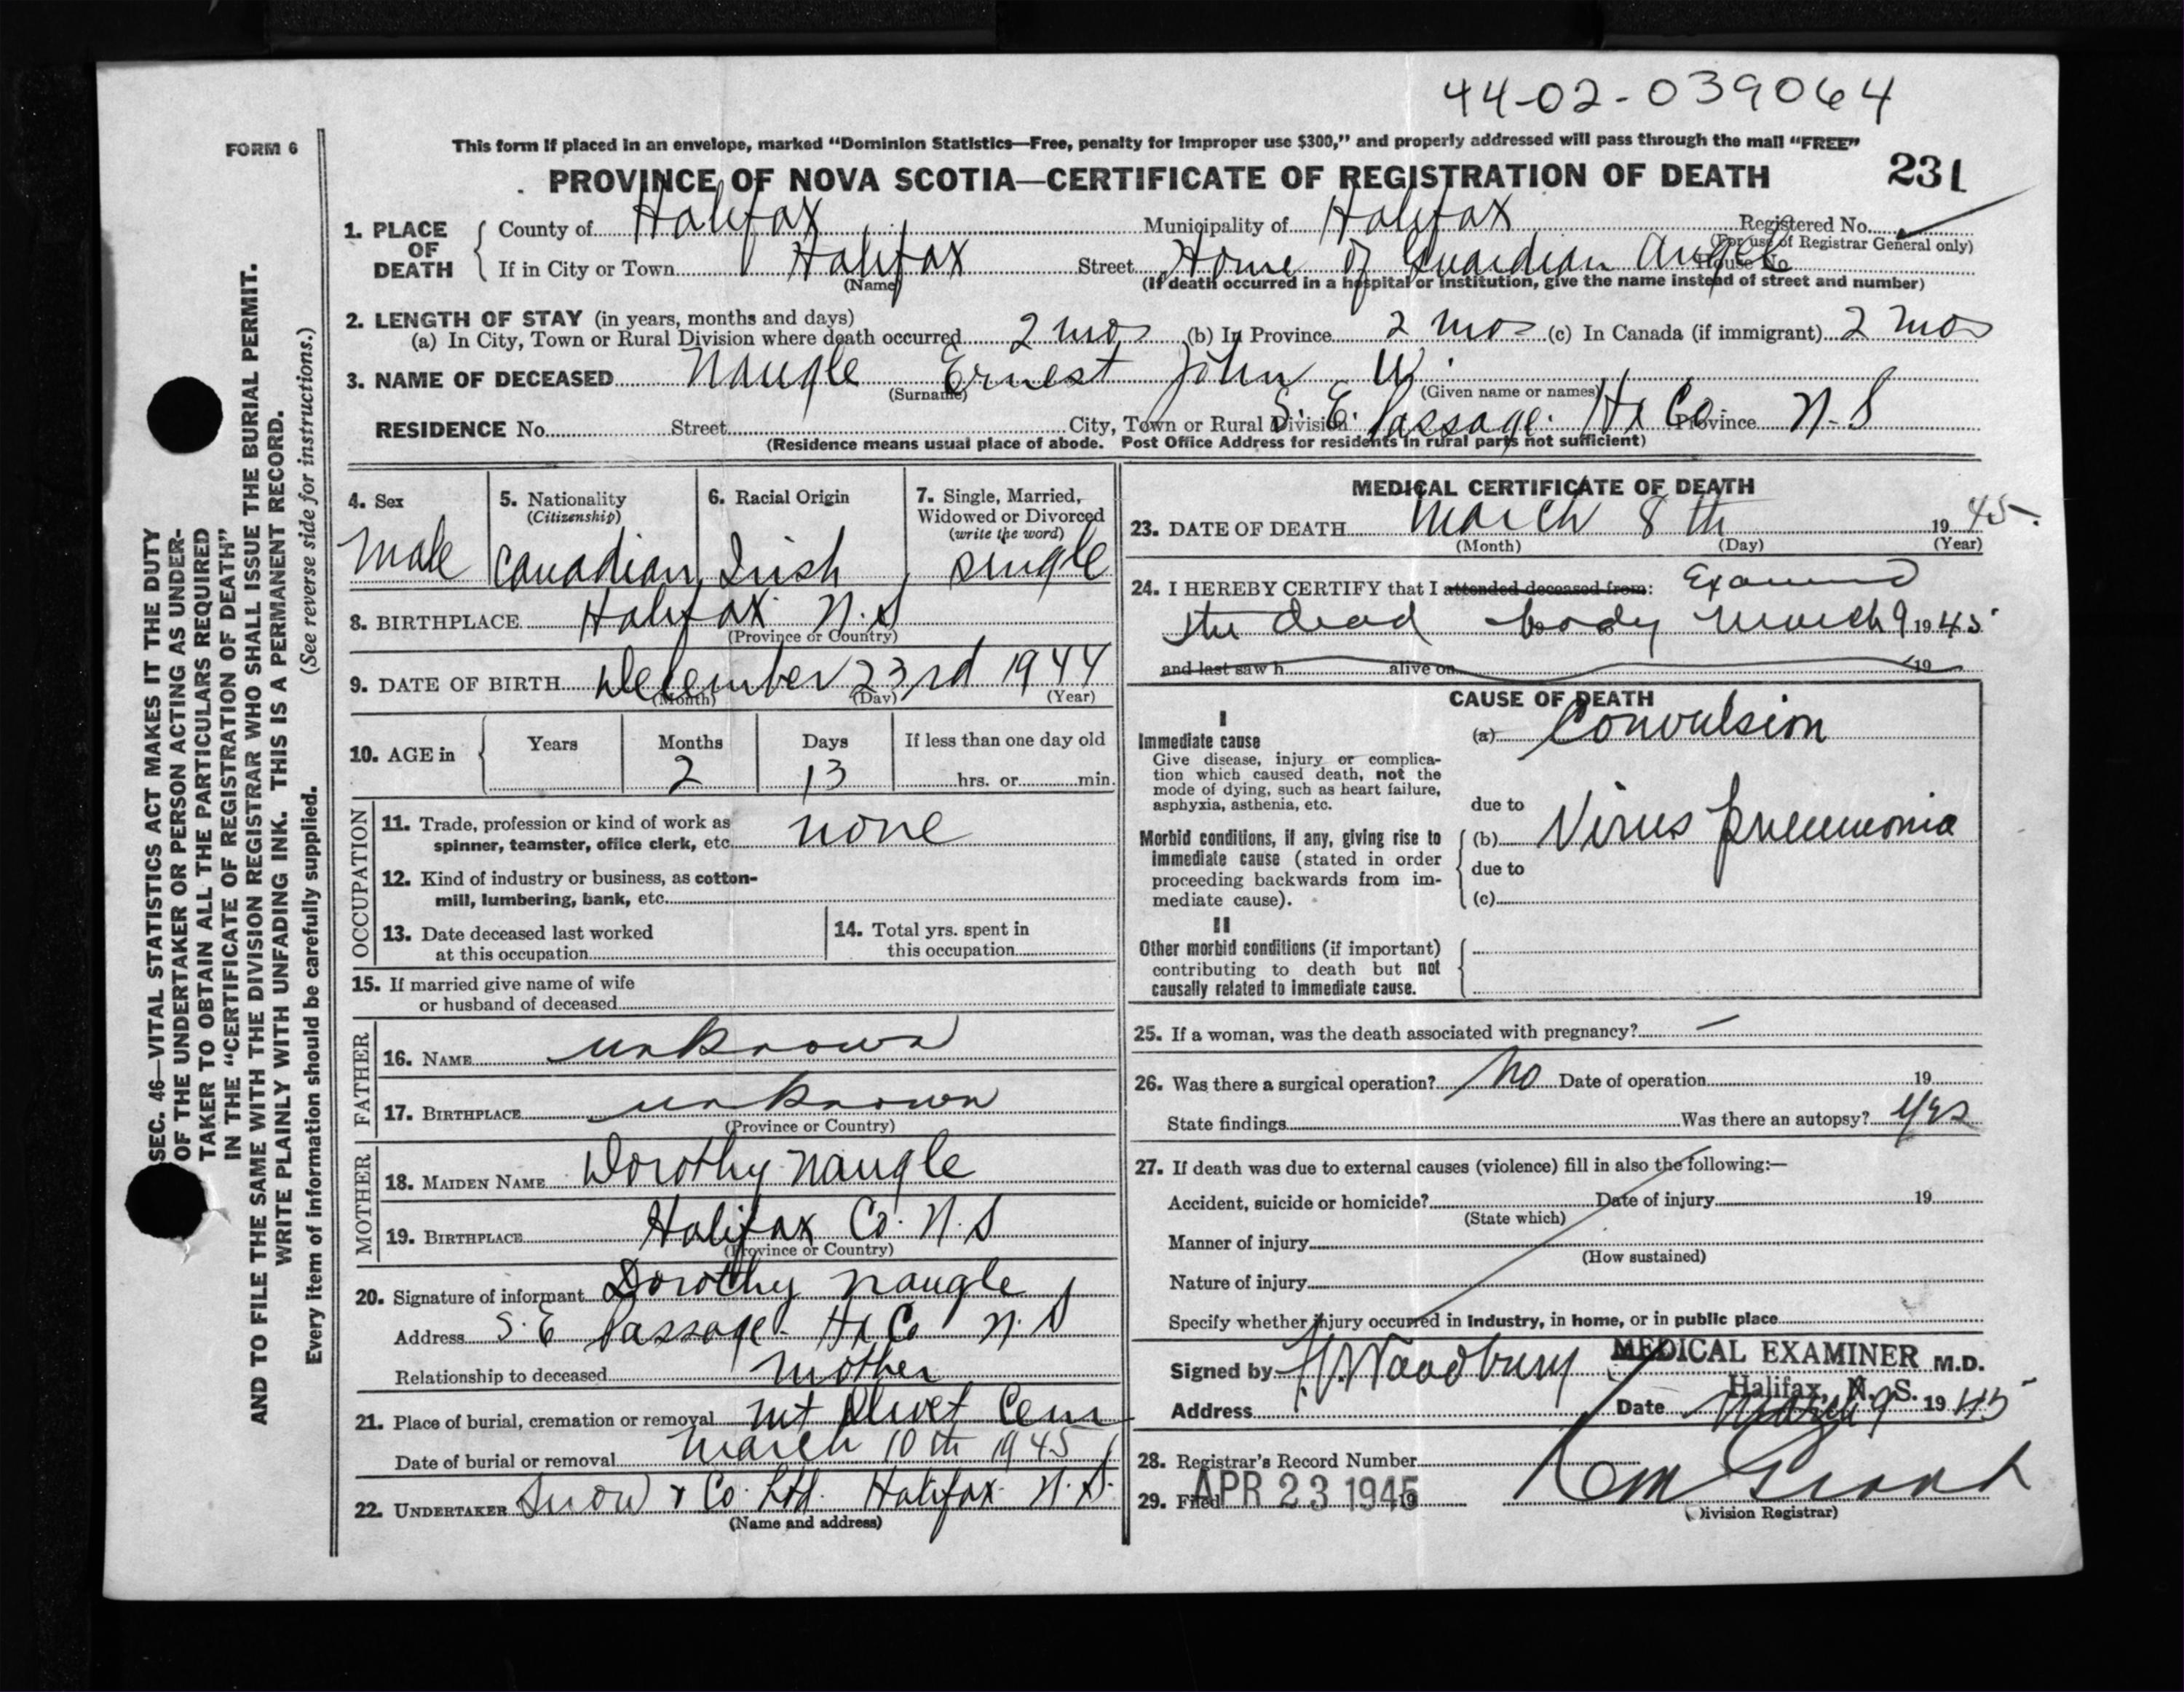 44-02-039064
FORM 6
This form if placed in an envelope, marked "Dominion Statistics—Free, penalty for improper use $300," and properly addressed will pass through the mail "FREE"
PROVINCE OF NOVA SCOTIA—CERTIFICATE OF REGISTRATION OF DEATH 231
1. PLACE OF DEATH County of Halifax Municipality of Halifax Registered No.
(For use of Registrar General only)
If in City or Town Halifax Street Home of Guardian Angel House No.
(Name) (If death occurred in a hospital or institution, give the name instead of street and number)
2. LENGTH OF STAY (in years, months and days)
(a) In City, Town or Rural Division where death occurred 2 mos (b) In Province 2 mos (c) In Canada (if immigrant) 2 mos
3. NAME OF DECEASED Naugle Ernest John W.
(Surname) (Given name or names)
RESIDENCE No. Street City, Town or Rural Division S. E. Passage. Hx Co. Province N-S
(Residence means usual place of abode. Post Office Address for residents in rural parts not sufficient)
SEC. 46—VITAL STATISTICS ACT MAKES IT THE DUTY
OF THE UNDERTAKER OR PERSON ACTING AS UNDER-
TAKER TO OBTAIN ALL THE PARTICULARS REQUIRED
IN THE "CERTIFICATE OF REGISTRATION OF DEATH"
AND TO FILE THE SAME WITH THE DIVISION REGISTRAR WHO SHALL ISSUE THE BURIAL PERMIT.
WRITE PLAINLY WITH UNFADING INK. THIS IS A PERMANENT RECORD.
Every item of information should be carefully supplied. (See reverse side for instructions.)
4. Sex 5. Nationality 6. Racial Origin 7. Single, Married,
(Citizenship) Widowed or Divorced
(write the word)
Male Canadian Irish single
8. BIRTHPLACE Halifax N.S
(Province or Country)
9. DATE OF BIRTH December 23rd 1944
(Month) (Day) (Year)
10. AGE in Years Months Days If less than one day old
2 13 hrs. or min.
OCCUPATION
11. Trade, profession or kind of work as
spinner, teamster, office clerk, etc. none
12. Kind of industry or business, as cotton-
mill, lumbering, bank, etc.
13. Date deceased last worked
at this occupation
14. Total yrs. spent in
this occupation
15. If married give name of wife
or husband of deceased
FATHER
16. NAME unknown
17. BIRTHPLACE unknown
(Province or Country)
MOTHER
18. MAIDEN NAME Dorothy Naugle
19. BIRTHPLACE Halifax Co. N.S
(Province or Country)
20. Signature of informant Dorothy Naugle
Address S. E Passage. Hx Co N. S
Relationship to deceased Mother
21. Place of burial, cremation or removal Mt Olivet Cem
Date of burial or removal March 10th 1945
22. UNDERTAKER Snow & Co. Ltd. Halifax N.S.
(Name and address)
MEDICAL CERTIFICATE OF DEATH
23. DATE OF DEATH March 8th 19 45
(Month) (Day) (Year)
24. I HEREBY CERTIFY that I attended deceased from: Examined
the dead body March 9 1945
and last saw h alive on 19
CAUSE OF DEATH
I
Immediate cause (a) Convulsion
Give disease, injury or complica-
tion which caused death, not the
mode of dying, such as heart failure,
asphyxia, asthenia, etc.
due to
Morbid conditions, if any, giving rise to (b) Virus pneumonia
immediate cause (stated in order
proceeding backwards from im- due to
mediate cause). (c)
II
Other morbid conditions (if important)
contributing to death but not
causally related to immediate cause.
25. If a woman, was the death associated with pregnancy? —
26. Was there a surgical operation? No Date of operation 19
State findings Was there an autopsy? Yes
27. If death was due to external causes (violence) fill in also the following:—
Accident, suicide or homicide? Date of injury 19
(State which)
Manner of injury
(How sustained)
Nature of injury
Specify whether injury occurred in Industry, in home, or in public place
Signed by Woodbury MEDICAL EXAMINER M.D.
Halifax, N. S.
Address Date March 9 1945
28. Registrar's Record Number
29. Filed APR 23 1945 19
(Division Registrar)